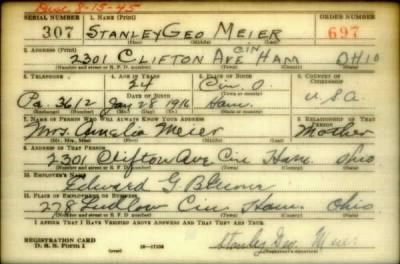 Disc. 8-15-45
SERIAL NUMBER 1. NAME (Print) ORDER NUMBER
307 STANLEY GEO MEIER 697
(First) (Middle) (Last)
2. ADDRESS (Print)
2301 CLIFTON AVE CIN HAM OHIO
(Number and street or R. F. D. number) (Town) (County) (State)
3. TELEPHONE 4. AGE IN YEARS 5. PLACE OF BIRTH 6. COUNTRY OF CITIZENSHIP
24 Cin O.
DATE OF BIRTH (Town or county)
Pa. 3612 Jan 28 1916 Ham. U.S.A.
(Exchange) (Number) (Mo.) (Day) (Yr.) (State or country)
7. NAME OF PERSON WHO WILL ALWAYS KNOW YOUR ADDRESS 8. RELATIONSHIP OF THAT PERSON
Mrs. Amelia Meier Mother
(Mr., Mrs., Miss) (First) (Middle) (Last)
9. ADDRESS OF THAT PERSON
2301 Clifton Ave Cin Ham. Ohio
(Number and street or R. F. D. number) (Town) (County) (State)
10. EMPLOYER'S NAME
Edward G
11. PLACE OF EMPLOYMENT OR BUSINESS
278 Ludlow Cin Ham. Ohio
(Number and street or R. F. D. number) (Town) (County) (State)
I AFFIRM THAT I HAVE VERIFIED ABOVE ANSWERS AND THAT THEY ARE TRUE.
REGISTRATION CARD
D. S. S. Form 1 (over) Stanley Geo. Meier